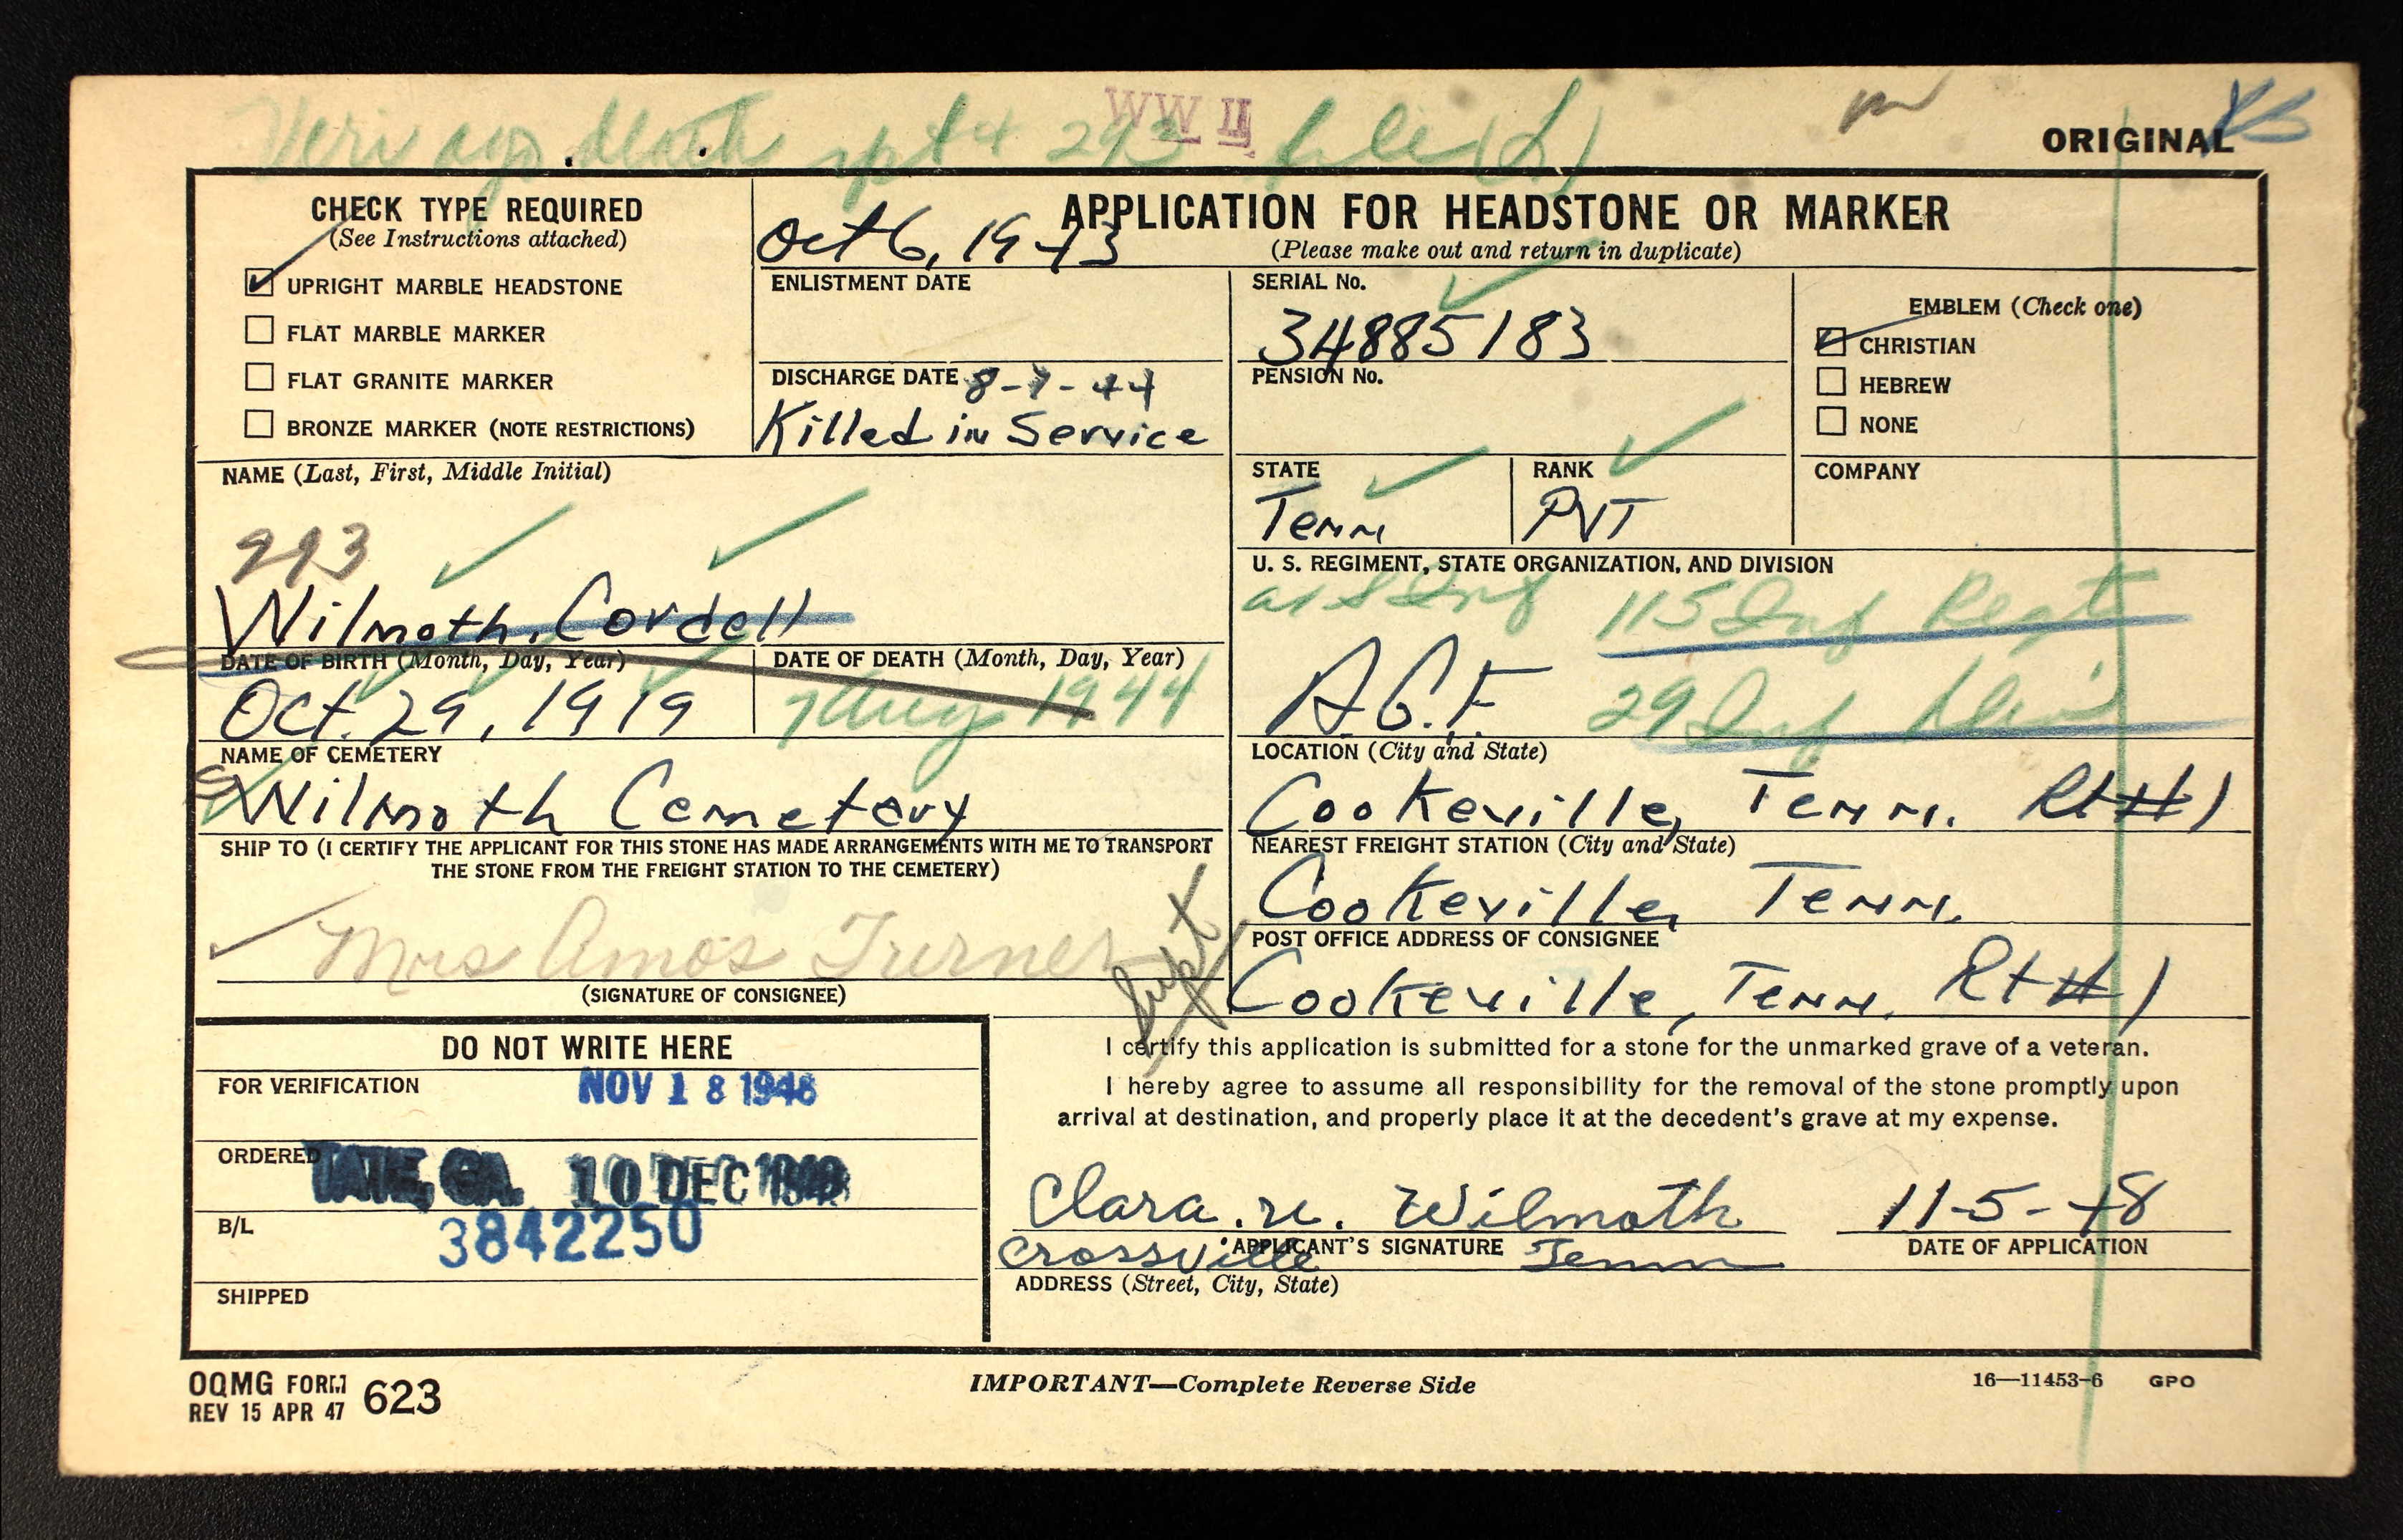 WW II
Veri ago. death rpt 4 293 file (L)
ORIGINAL
CHECK TYPE REQUIRED
(See Instructions attached)
UPRIGHT MARBLE HEADSTONE
FLAT MARBLE MARKER
FLAT GRANITE MARKER
BRONZE MARKER (NOTE RESTRICTIONS)
Oct 6, 1943
ENLISTMENT DATE
DISCHARGE DATE 8-7-44
Killed in Service
APPLICATION FOR HEADSTONE OR MARKER
(Please make out and return in duplicate)
SERIAL No.
34885183
PENSION No.
EMBLEM (Check one)
CHRISTIAN
HEBREW
NONE
NAME (Last, First, Middle Initial)
293
Wilmoth, Cordell
STATE
Tenn
RANK
PVT
COMPANY
U. S. REGIMENT, STATE ORGANIZATION, AND DIVISION
115 Inf Regt
A.G.F. 29 Inf Div
DATE OF BIRTH (Month, Day, Year)
Oct. 29, 1919
DATE OF DEATH (Month, Day, Year)
7 Aug 1944
NAME OF CEMETERY
Wilmoth Cemetary
LOCATION (City and State)
Cookeville, Tenn. Rt #1
SHIP TO (I CERTIFY THE APPLICANT FOR THIS STONE HAS MADE ARRANGEMENTS WITH ME TO TRANSPORT
THE STONE FROM THE FREIGHT STATION TO THE CEMETERY)
Mrs Amos Turner
(SIGNATURE OF CONSIGNEE)
Supt
NEAREST FREIGHT STATION (City and State)
Cookeville, Tenn.
POST OFFICE ADDRESS OF CONSIGNEE
Cookeville, Tenn. Rt #1
DO NOT WRITE HERE
FOR VERIFICATION NOV 18 1948
ORDERED TATE, GA. 10 DEC 1948
B/L 3842250
SHIPPED
I certify this application is submitted for a stone for the unmarked grave of a veteran.
I hereby agree to assume all responsibility for the removal of the stone promptly upon
arrival at destination, and properly place it at the decedent's grave at my expense.
Clara. N. Wilmoth 11-5-48
APPLICANT'S SIGNATURE DATE OF APPLICATION
Crossville Tenn
ADDRESS (Street, City, State)
OQMG FORM 623
REV 15 APR 47
IMPORTANT—Complete Reverse Side
16—11453-6 GPO